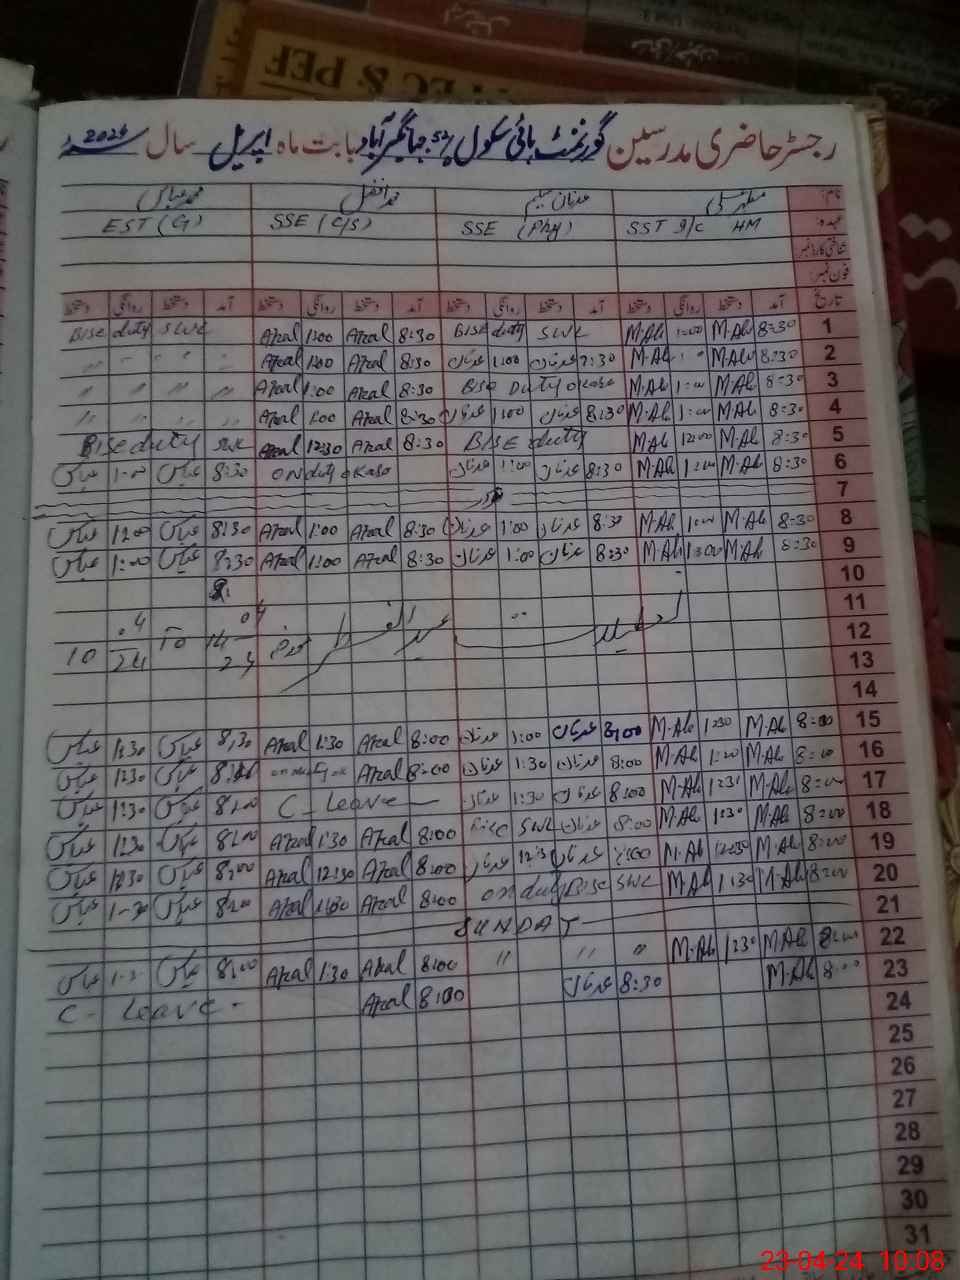 EC & PEF
رجسٹر حاضری مدرسین گورنمنٹ ہائی سکول 52 جہانگیر آباد بابت ماہ اپریل سال 2024
نام: مظہر علی عدنان سلیم محمد افضل محمد عباس
عہدہ SST I/C HM SSE (Phy) SSE (C/S) EST (G)
شناختی کارڈ نمبر
فون نمبر:
تاریخ آمد دستخط روانگی دستخط آمد دستخط روانگی دستخط آمد دستخط روانگی دستخط آمد دستخط روانگی دستخط
1 8=30 M.Ali 1:00 M.Ali BISE duty SWL 8:30 Afzal 1:00 Afzal BISE duty SWL
2 8=30 M.Ali M.Ali عدنان 1:00 عدنان 8:30 Afzal 1:00 Afzal " " " "
3 8=30 M.Ali 1:00 M.Ali BISE Duty okara 8:30 Afzal 1:00 Afzal " " " "
4 8=30 M.Ali 1:00 M.Ali 8:30 عدنان 1:00 عدنان 8:30 Afzal 1:00 Afzal " " " "
5 8=30 M.Ali 12:00 M.Ali BISE duty 8:30 Afzal 12:30 Afzal BISE duty SWL
6 8=30 M.Ali 1:00 M.Ali 8:30 عدنان 1:00 عدنان ON duty okara 8:30 عباس 1:00 عباس
7
8 8=30 M.Ali 1:00 M.Ali 8:30 عدنان 1:00 عدنان 8:30 Afzal 1:00 Afzal 8:30 عباس 1:00 عباس
9 8=30 M.Ali 1:00 M.Ali 8:30 عدنان 1:00 عدنان 8:30 Afzal 1:00 Afzal 8:30 عباس 1:00 عباس
10
11
12 تعطیلات عید الفطر مورخہ 10 04 24 to 14 04 24
13
14
15 8=00 M.Ali 1:30 M.Ali 8:00 عدنان 1:00 عدنان 8:00 Afzal 1:30 Afzal 8:30 عباس 1:30 عباس
16 8=00 M.Ali M.Ali 8:00 عدنان 1:30 عدنان 8:00 Afzal عباس 1:30 عباس
17 8=00 M.Ali 1:30 M.Ali 8:00 عدنان 1:30 عدنان C-Leave 8:00 عباس 1:30 عباس
18 8=00 M.Ali 1:30 M.Ali 8:00 عدنان SWL Bise 8:00 Afzal 1:30 Afzal 8:00 عباس 1:30 عباس
19 8=00 M.Ali 12:30 M.Ali 8:00 عدنان 12:30 عدنان 8:00 Afzal 12:30 Afzal 8:00 عباس 12:30 عباس
20 8=00 M.Ali 1:30 M.Ali on duty Bise SWL 8:00 Afzal 1:30 Afzal 8:00 عباس 1-30 عباس
21 SUNDAY
22 8:00 M.Ali 1:30 M.Ali " " " 8:00 Afzal 1:30 Afzal 8:00 عباس عباس
23 8:00 M.Ali 8:30 عدنان 8:00 Afzal C-Leave
24
25
26
27
28
29
30
31
23-04-24 10:08